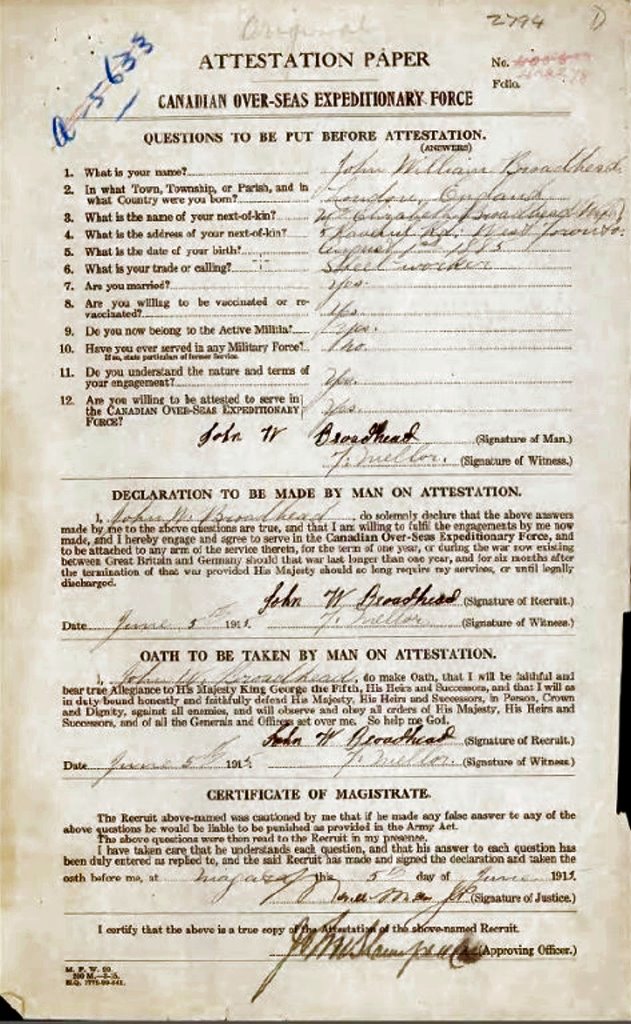 Original
2794
D
a-5633
ATTESTATION PAPER
No.
Folio.
CANADIAN OVER-SEAS EXPEDITIONARY FORCE
QUESTIONS TO BE PUT BEFORE ATTESTATION.
(ANSWERS)
1. What is your name? John William Broadhead
2. In what Town, Township, or Parish, and in
what Country were you born? London, England
3. What is the name of your next-of-kin? Mrs Elizabeth Broadhead (Wife)
4. What is the address of your next-of-kin? 5 Rd. West Toronto.
5. What is the date of your birth? August 1885
6. What is your trade or calling? Steel worker
7. Are you married? Yes.
8. Are you willing to be vaccinated or re-
vaccinated? Yes
9. Do you now belong to the Active Militia? Yes.
10. Have you ever served in any Military Force? No.
If so, state particulars of former Service.
11. Do you understand the nature and terms of
your engagement? Yes.
12. Are you willing to be attested to serve in
the CANADIAN OVER-SEAS EXPEDITIONARY
FORCE? Yes.
John W Broadhead (Signature of Man.)
F. Mellor. (Signature of Witness.)
DECLARATION TO BE MADE BY MAN ON ATTESTATION.
I, John W. Broadhead, do solemnly declare that the above answers
made by me to the above questions are true, and that I am willing to fulfil the engagements by me now
made, and I hereby engage and agree to serve in the Canadian Over-Seas Expeditionary Force, and
to be attached to any arm of the service therein, for the term of one year, or during the war now existing
between Great Britain and Germany should that war last longer than one year, and for six months after
the termination of that war provided His Majesty should so long require my services, or until legally
discharged.
John W Broadhead (Signature of Recruit.)
Date June 5th 1915. F. Mellor (Signature of Witness.)
OATH TO BE TAKEN BY MAN ON ATTESTATION.
I, John W. Broadhead, do make Oath, that I will be faithful and
bear true Allegiance to His Majesty King George the Fifth, His Heirs and Successors, and that I will as
in duty bound honestly and faithfully defend His Majesty, His Heirs and Successors, in Person, Crown
and Dignity, against all enemies, and will observe and obey all orders of His Majesty, His Heirs and
Successors, and of all the Generals and Officers set over me. So help me God.
John W Broadhead (Signature of Recruit.)
Date June 5th 1915. F. Mellor (Signature of Witness.)
CERTIFICATE OF MAGISTRATE.
The Recruit above-named was cautioned by me that if he made any false answer to any of the
above questions he would be liable to be punished as provided in the Army Act.
The above questions were then read to the Recruit in my presence.
I have taken care that he understands each question, and that his answer to each question has
been duly entered as replied to, and the said Recruit has made and signed the declaration and taken the
oath before me, at Niagara this 5th day of June 1915.
(Signature of Justice.)
I certify that the above is a true copy of the Attestation of the above-named Recruit.
(Approving Officer.)
M. F. W. 23.
H.Q. 1772-39-841.